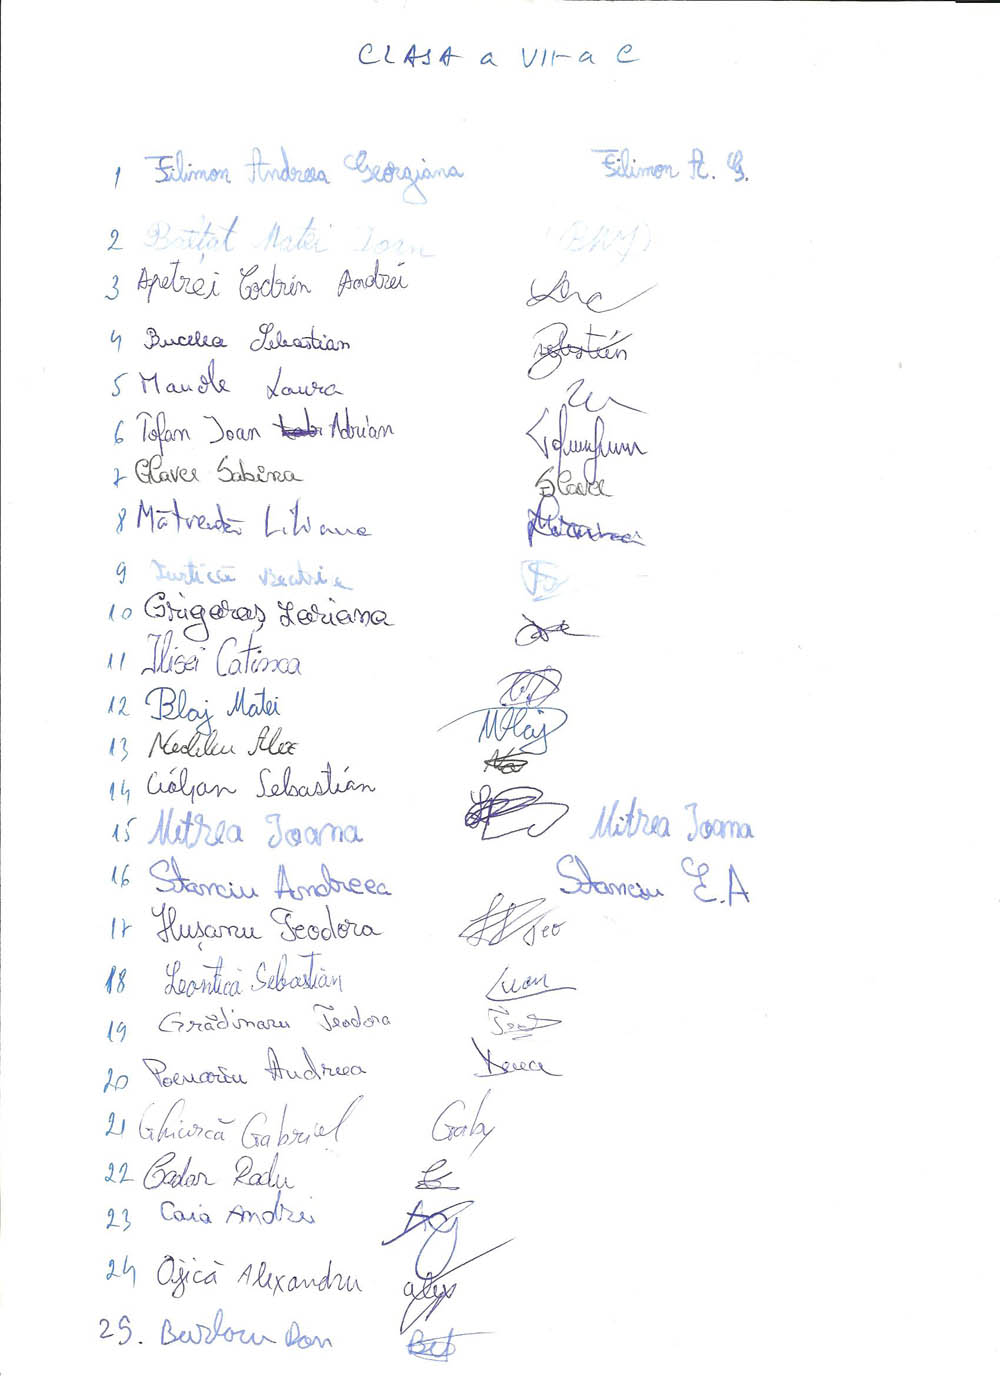 CLASA a VII-a C
1 Filimon Andreea Georgiana Filimon A. G.
2 Băețat Matei Ioan (BMI)
3 Apetrei Codrin Andrei
4 Bucelea Sebastian Sebastian
5 Manole Laura
6 Tofan Ioan Adrian
7 Slavei Sabina Slavei
8 Liliana
9 Beatrice
10 Grigoraș Lariana
11 Ilisei Catinca
12 Blaj Matei MBlaj
13 Nedelcu Alex
14 Ciolpan Sebastian
15 Mitrea Ioana Mitrea Ioana
16 Stanciu Andreea Stanciu E.A
17 Hușanu Teodora Teo
18 Leontică Sebastian
19 Grădinaru Teodora Teo
20 Poenariu Andreea
21 Ghiurcă Gabriel Gaby
22 Cadar Radu
23 Caia Andrei
24 Ojică Alexandru alex
25. Burlacu Dan